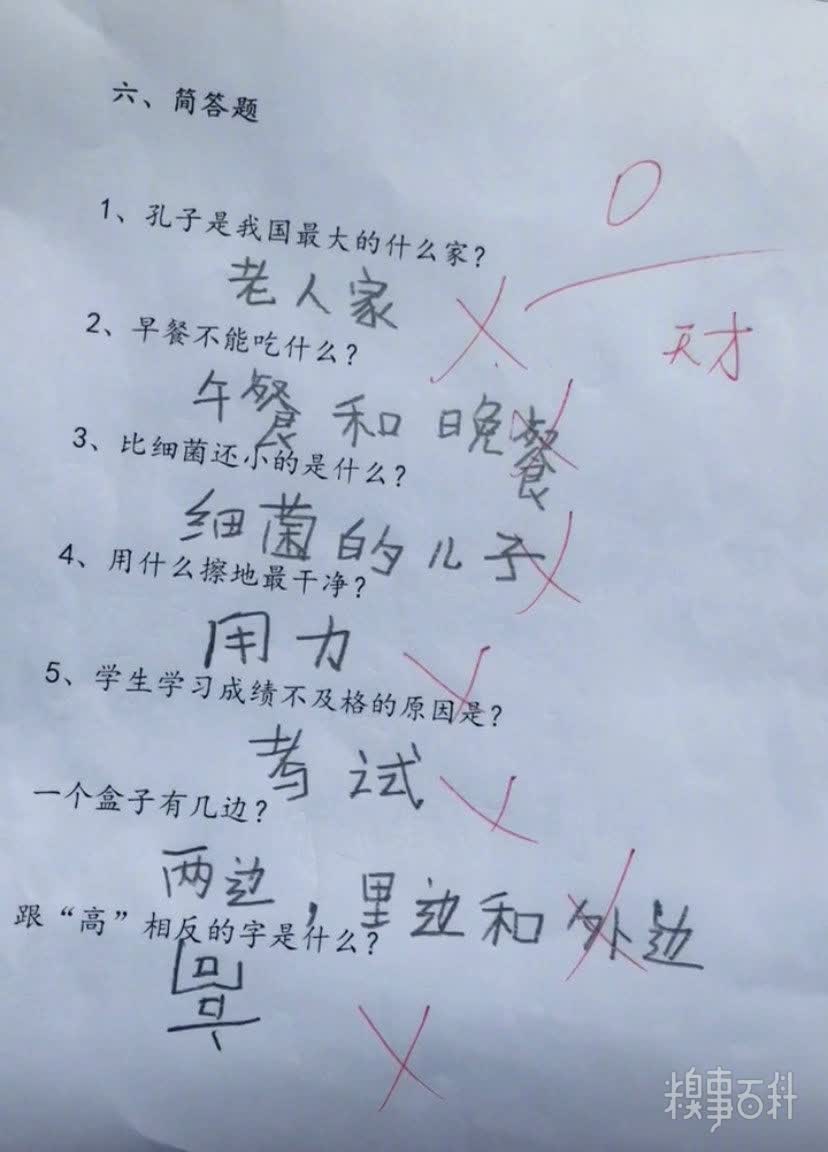 六、简答题
0
天才
1、孔子是我国最大的什么家？
老人家
2、早餐不能吃什么？
午餐和晚餐
3、比细菌还小的是什么？
细菌的儿子
4、用什么擦地最干净？
用力
5、学生学习成绩不及格的原因是？
考试
一个盒子有几边？
两边，里边和外边
跟“高”相反的字是什么？
糗事百科